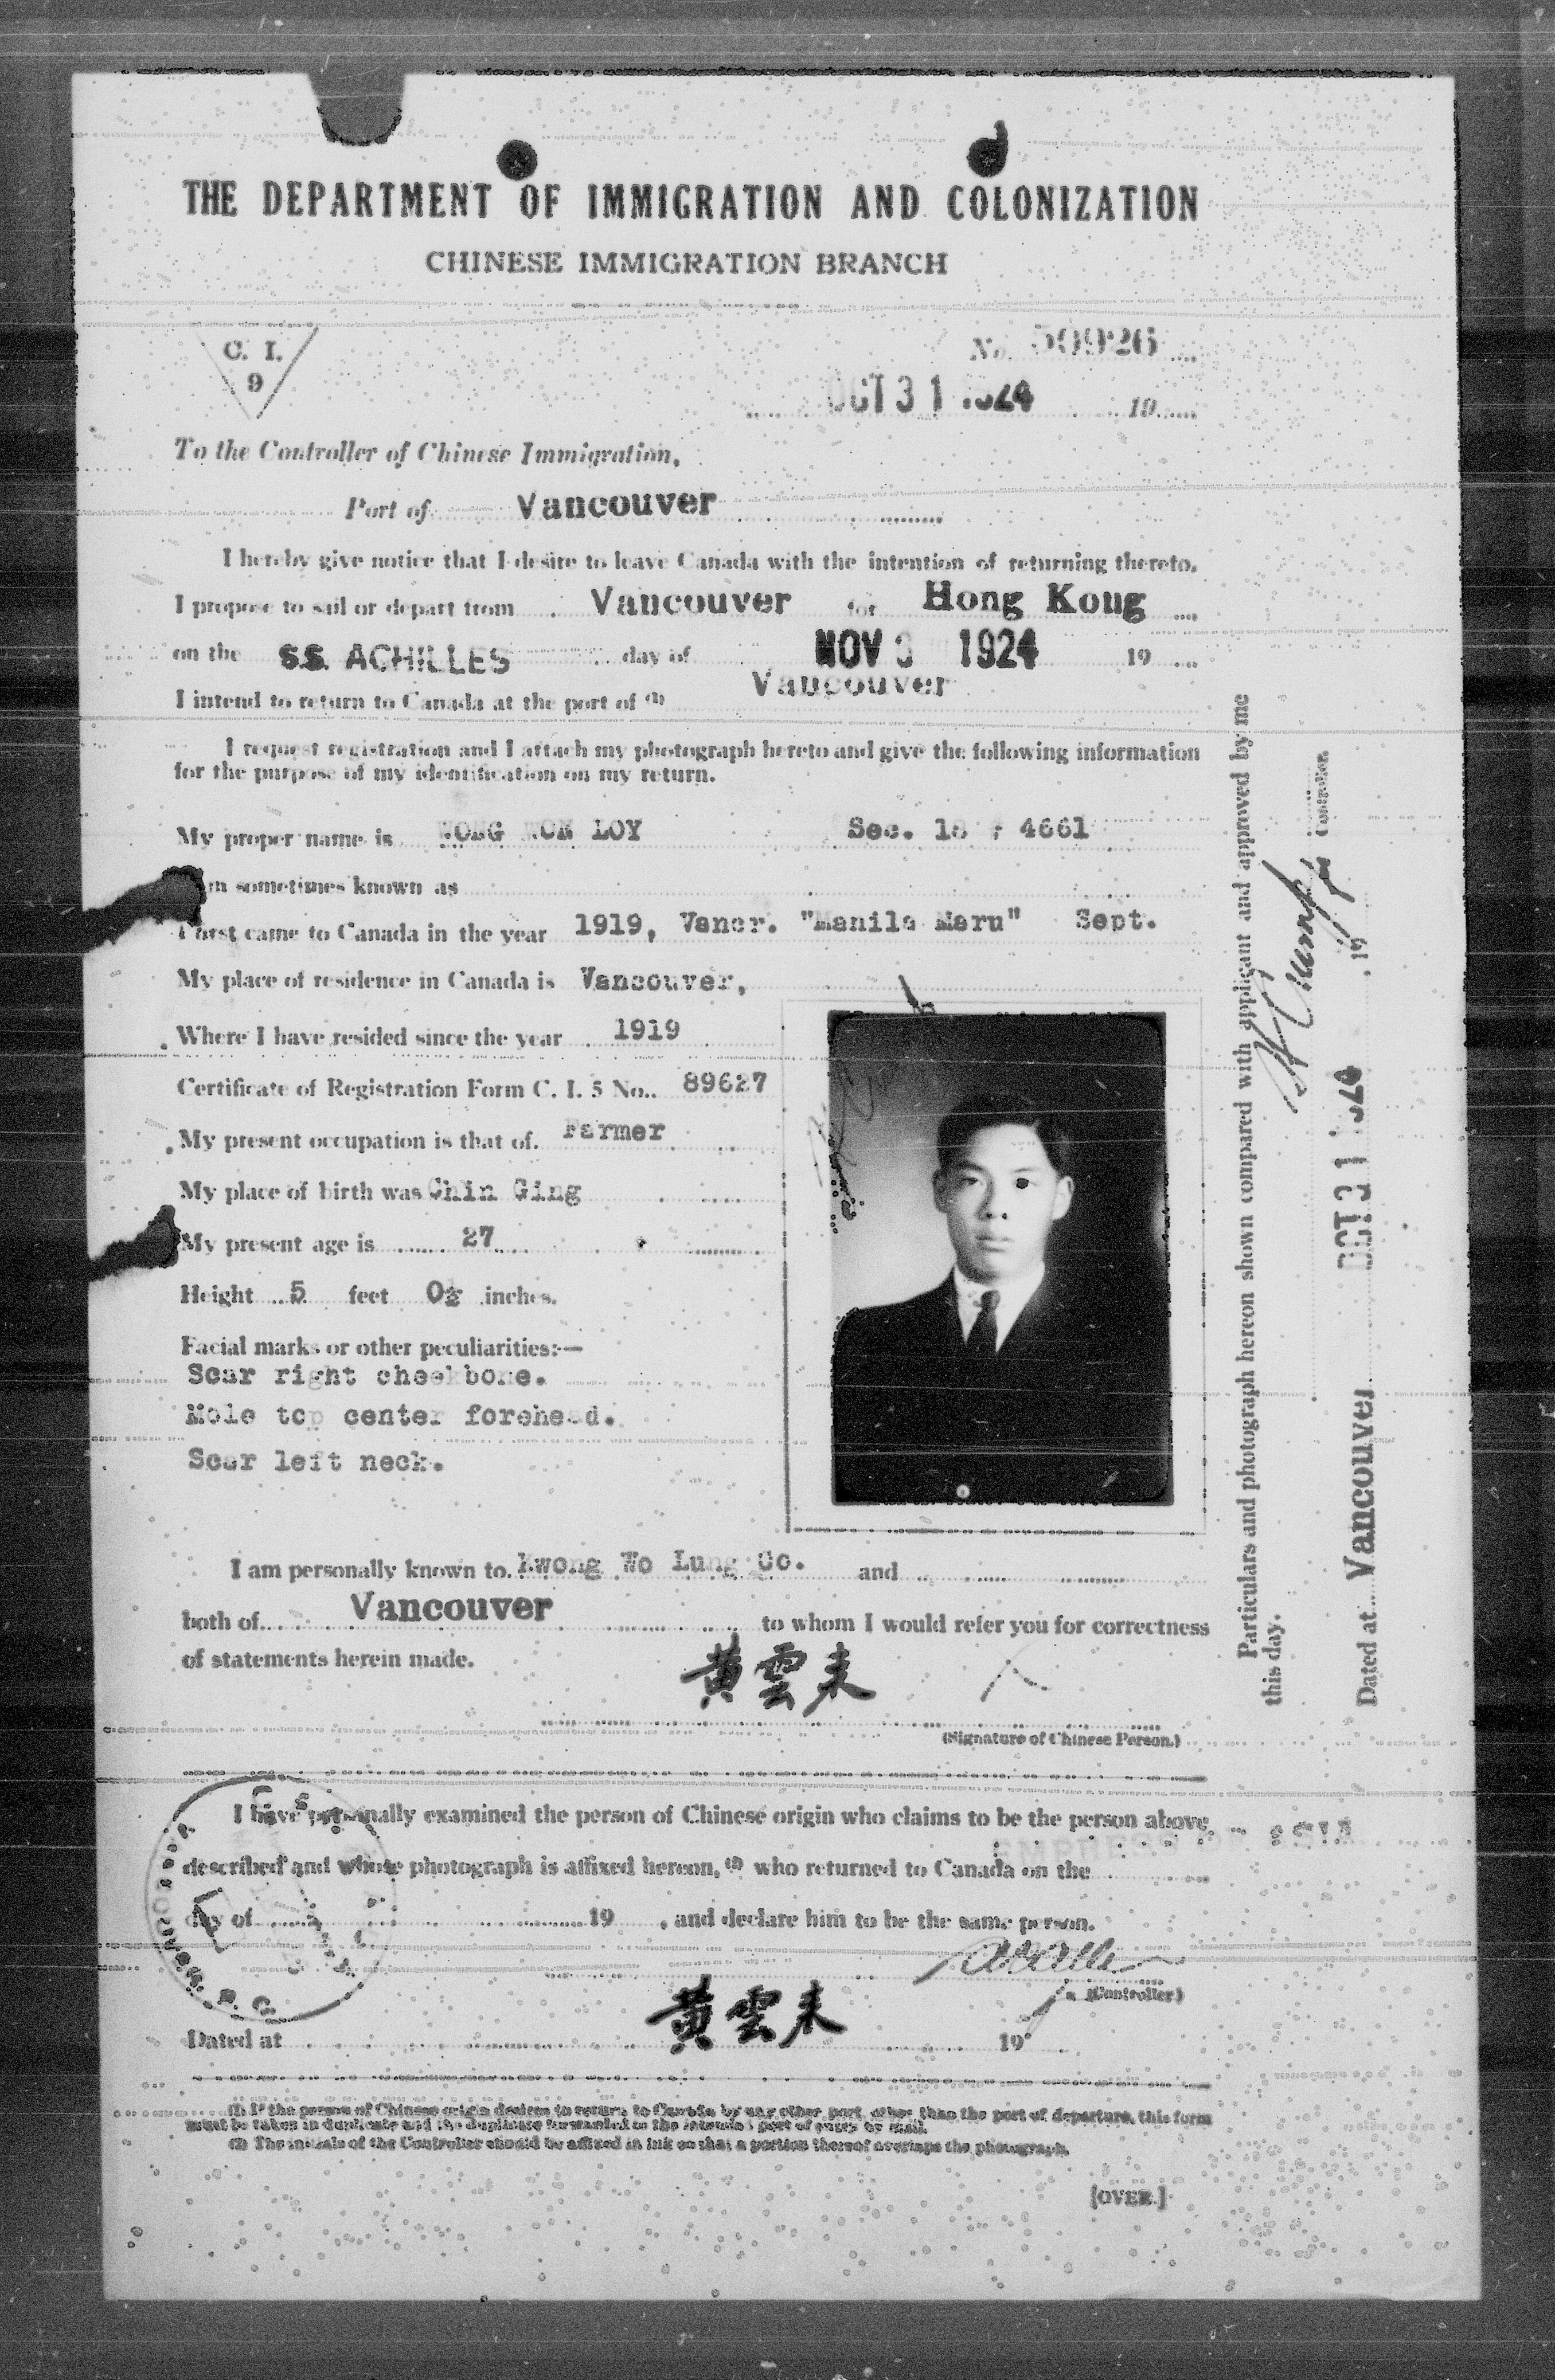 THE DEPARTMENT OF IMMIGRATION AND COLONIZATION
CHINESE IMMIGRATION BRANCH
C. I.
9
No. 50926
OCT 31 1924 19
To the Controller of Chinese Immigration,
Port of Vancouver
I hereby give notice that I desire to leave Canada with the intention of returning thereto.
I propose to sail or depart from Vancouver for Hong Kong
on the SS. ACHILLES day of NOV 1924 19
I intend to return to Canada at the port of (1) Vancouver
I request registration and I attach my photograph hereto and give the following information
for the purpose of my identification on my return.
My proper name is WONG LOY Sec. 4661
am sometimes known as
I first came to Canada in the year 1919, Vancr. "Manila Maru" Sept.
My place of residence in Canada is Vancouver,
Where I have resided since the year 1919
Certificate of Registration Form C. I. 5 No. 89627
My present occupation is that of Farmer
My place of birth was Chin Ging
My present age is 27
Height 5 feet 0½ inches.
Facial marks or other peculiarities:—
Scar right cheekbone.
Mole top center forehead.
Scar left neck.
I am personally known to Kwong Wo Lung Co. and
both of Vancouver to whom I would refer you for correctness
of statements herein made.
黃雲来
(Signature of Chinese Person.)
I have personally examined the person of Chinese origin who claims to be the person above
described and whose photograph is affixed hereon, (2) who returned to Canada on the
day of 19 , and declare him to be the same person.
(Controller)
黃雲来
Dated at 19
(1) If the person of Chinese origin desires to return to Canada by any other port, other than the port of departure, this form
must be taken in duplicate and the duplicate forwarded to the intended port of entry by mail.
(2) The initials of the Controller should be affixed in ink so that a portion thereof overlaps the photograph.
[OVER.]
Particulars and photograph hereon shown compared with applicant and approved by me
this day.
Controller.
Dated at Vancouver OCT 31 1924 , 19